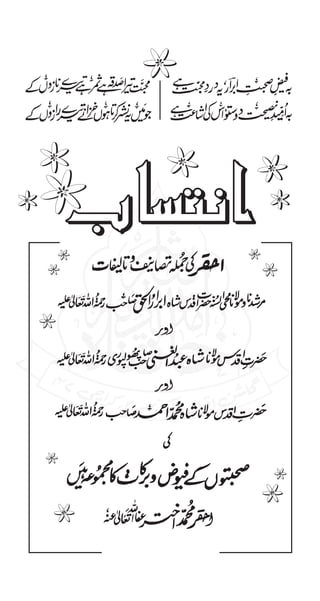 بہ فیضِ صحبتِ ابرار یہ دردِ محبت ہے
بہ اُمیدِ نصیحت دوستو اس کی اشاعت ہے
محبت تیرا صدقہ ہے ثمر ہے تیرے نازوں کے
جو میں یہ نشر کرتا ہوں خزانے تیرے رازوں کے
انتساب
احقر کی جملہ تصانیف و تالیفات
مرشدنا و مولانا محی السنہ حضرتِ اقدس شاہ ابرار الحق صاحب رحمۃ اللہ تعالیٰ علیہ
اور
حضرتِ اقدس مولانا شاہ عبدالغنی صاحب پھولپوری رحمۃ اللہ تعالیٰ علیہ
اور
حضرتِ اقدس مولانا شاہ محمد احمد صاحب رحمۃ اللہ تعالیٰ علیہ
کی
صحبتوں کے فیوض و برکات کا مجموعہ ہیں
احقر محمد اختر عفا اللہ تعالیٰ عنہ